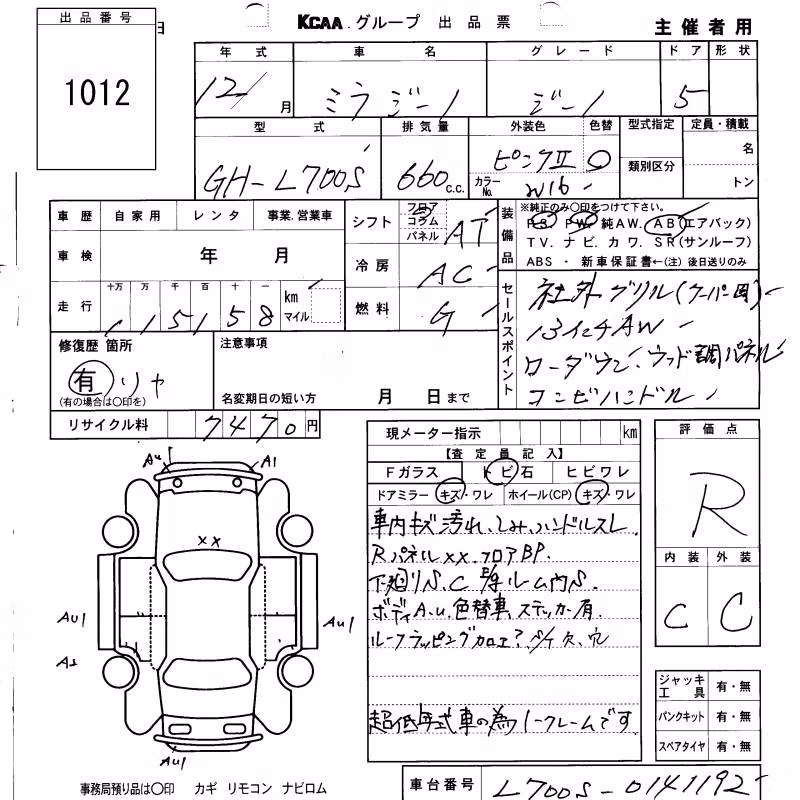 出品番号
1012
日
KCAA グループ 出品票
主催者用
年式 車名 グレード ドア 形状
12/ 月 ミラジーノ ジーノ 5
型式 排気量 外装色 色替 型式指定 定員・積載
GH-L700S 660 c.c. ピンクII ○ 類別区分 名
カラーNo. W16 トン
車歴 自家用 レンタ 事業.営業車
シフト フロア コラム パネル AT
装備品 ※純正のみ○印をつけて下さい。
PS. PW. 純AW. AB(エアバック)
TV. ナビ. カワ. SR(サンルーフ)
ABS ・ 新車保証書←(注)後日送りのみ
車検 年 月
冷房 AC
走行 十万 万 千 百 十 一 km マイル
115158
燃料 G
セールスポイント
社外グリル(クーパー風)
13インチAW
ローダウン.ウッド調パネル
コンビハンドル
修復歴 箇所
有 リヤ
(有の場合は○印を)
注意事項
名変期日の短い方 月 日まで
リサイクル料 7470 円
現メーター指示 km
【査定員記入】
Fガラス トビ石 ヒビワレ
ドアミラー キズ・ワレ ホイール(CP) キズ・ワレ
車内キズ汚れ.しみ.ハンドルスレ
Rパネルxx.フロアBP.
下廻りS.C E/gルーム内S.
ボディA.U.色替車.ステッカー有.
ルーフラッピング加工?
超低年式車の為ノークレームです
評価点
R
内装 外装
C C
ジャッキ 工具 有・無
パンクキット 有・無
スペアタイヤ 有・無
AU A1
xx
AU1 AU1
A2
AU1
事務局預り品は○印 カギ リモコン ナビロム
車台番号 L700S-0141192